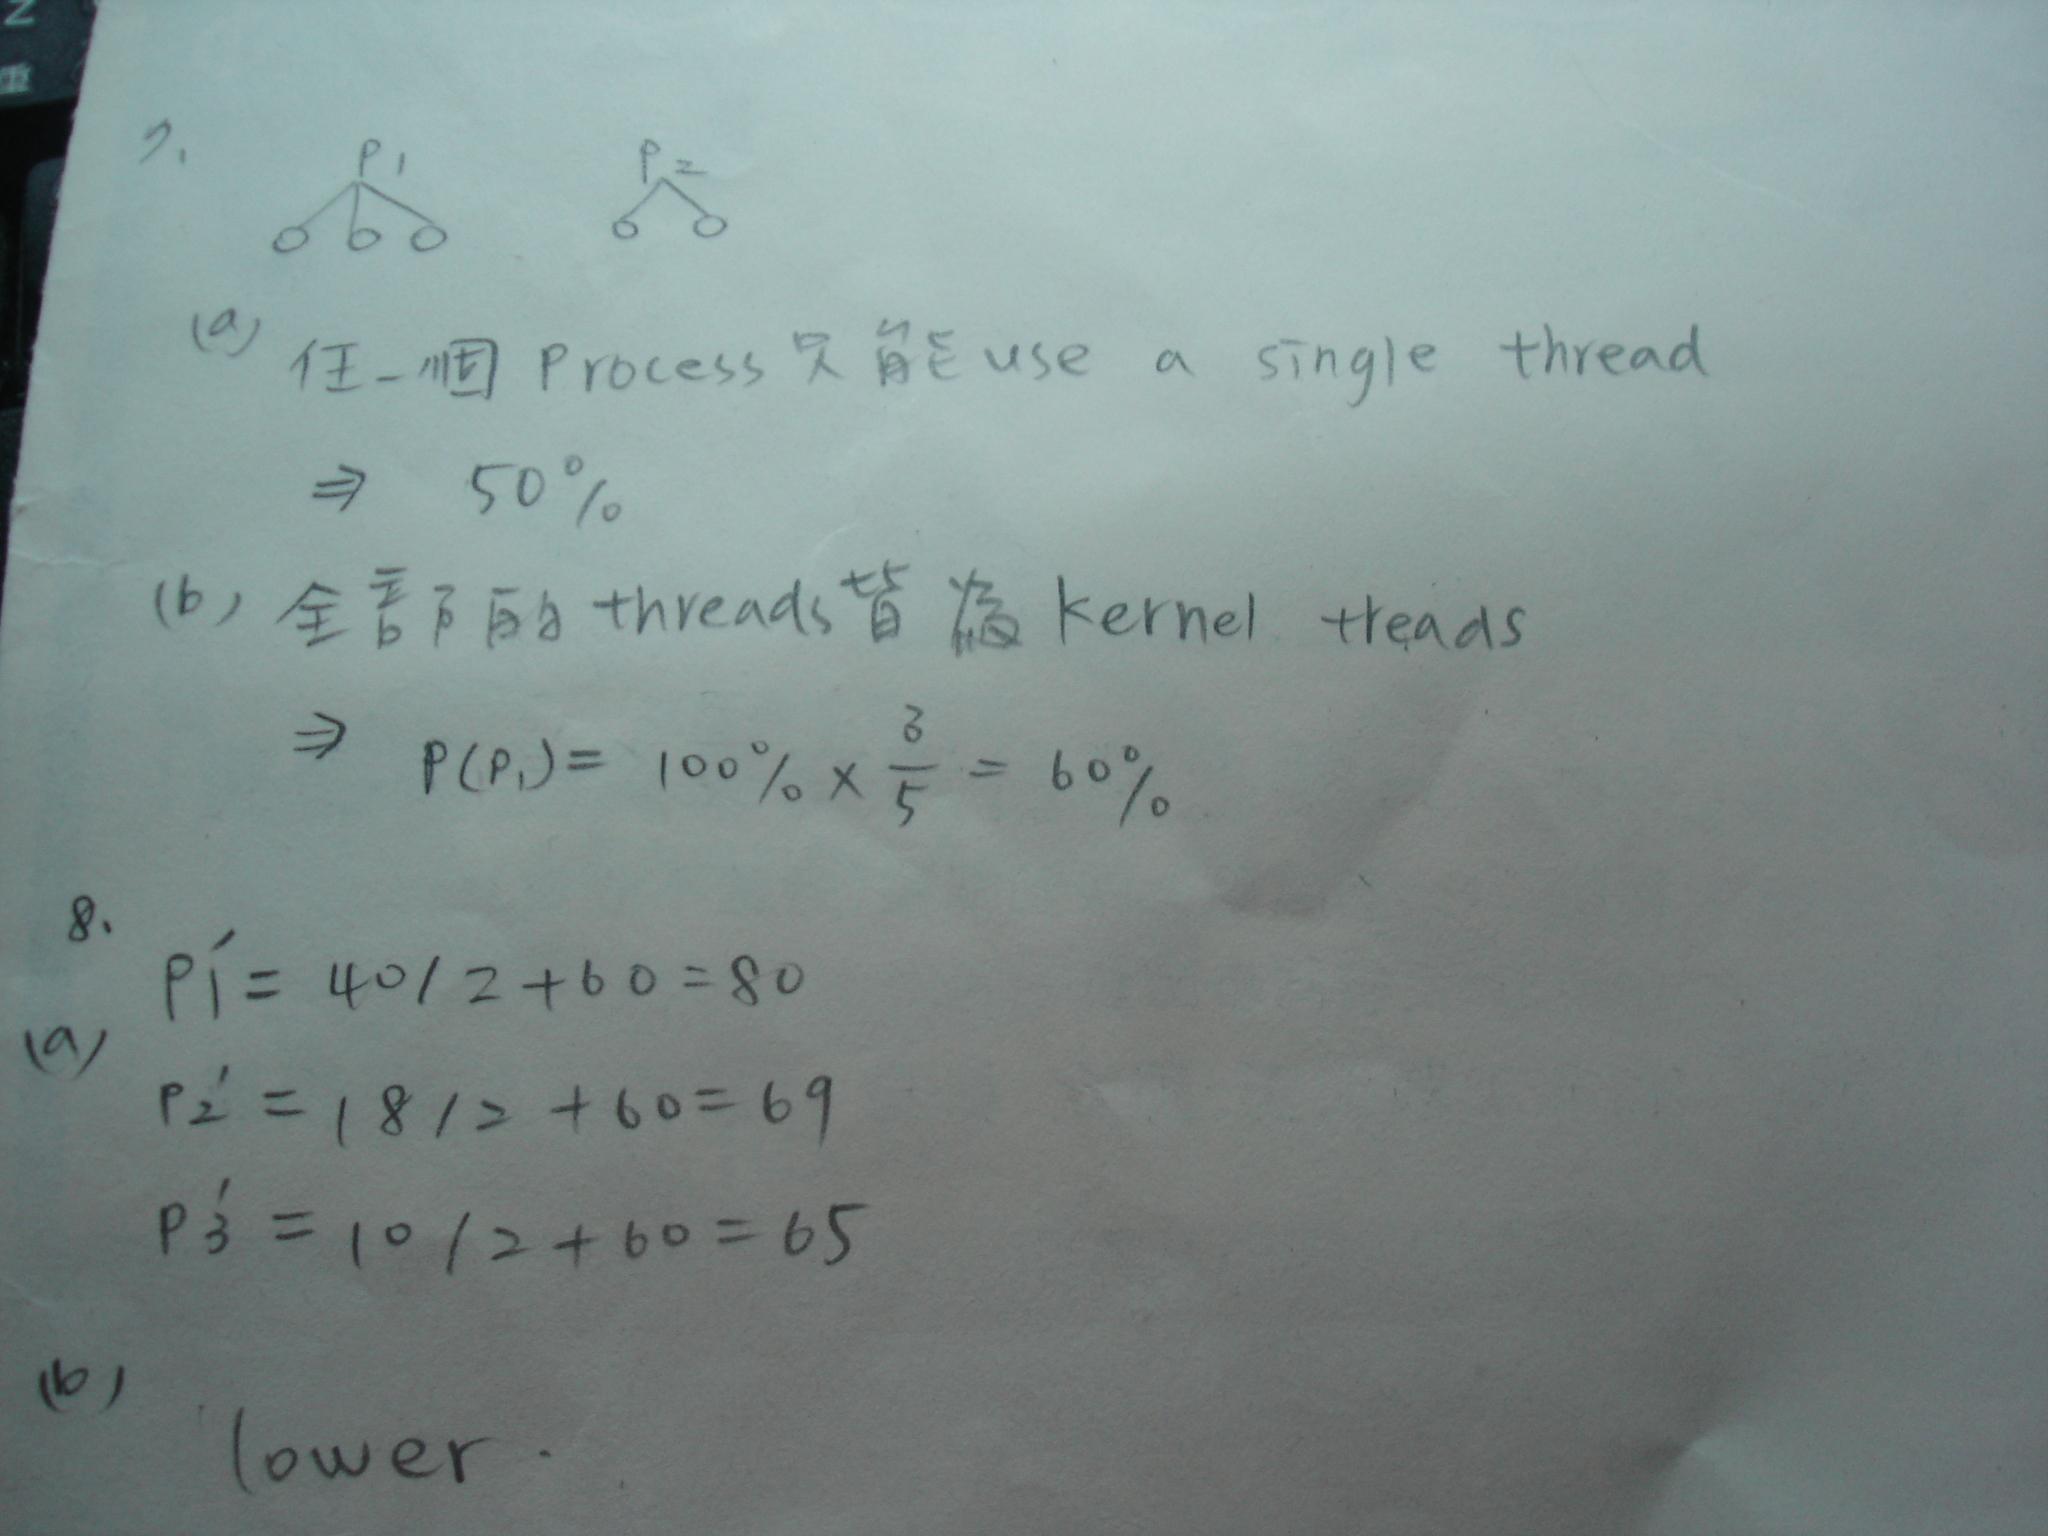 7.
P1 P2
(a) 任一個 Process 只能 use a single thread
⇒ 50%
(b) 全部的 threads 皆為 kernel treads
⇒ P(P1) = 100% × 3/5 = 60%
8.
(a) P1' = 40/2+60=80
P2' = 18/2+60=69
P3' = 10/2+60=65
(b)
lower.